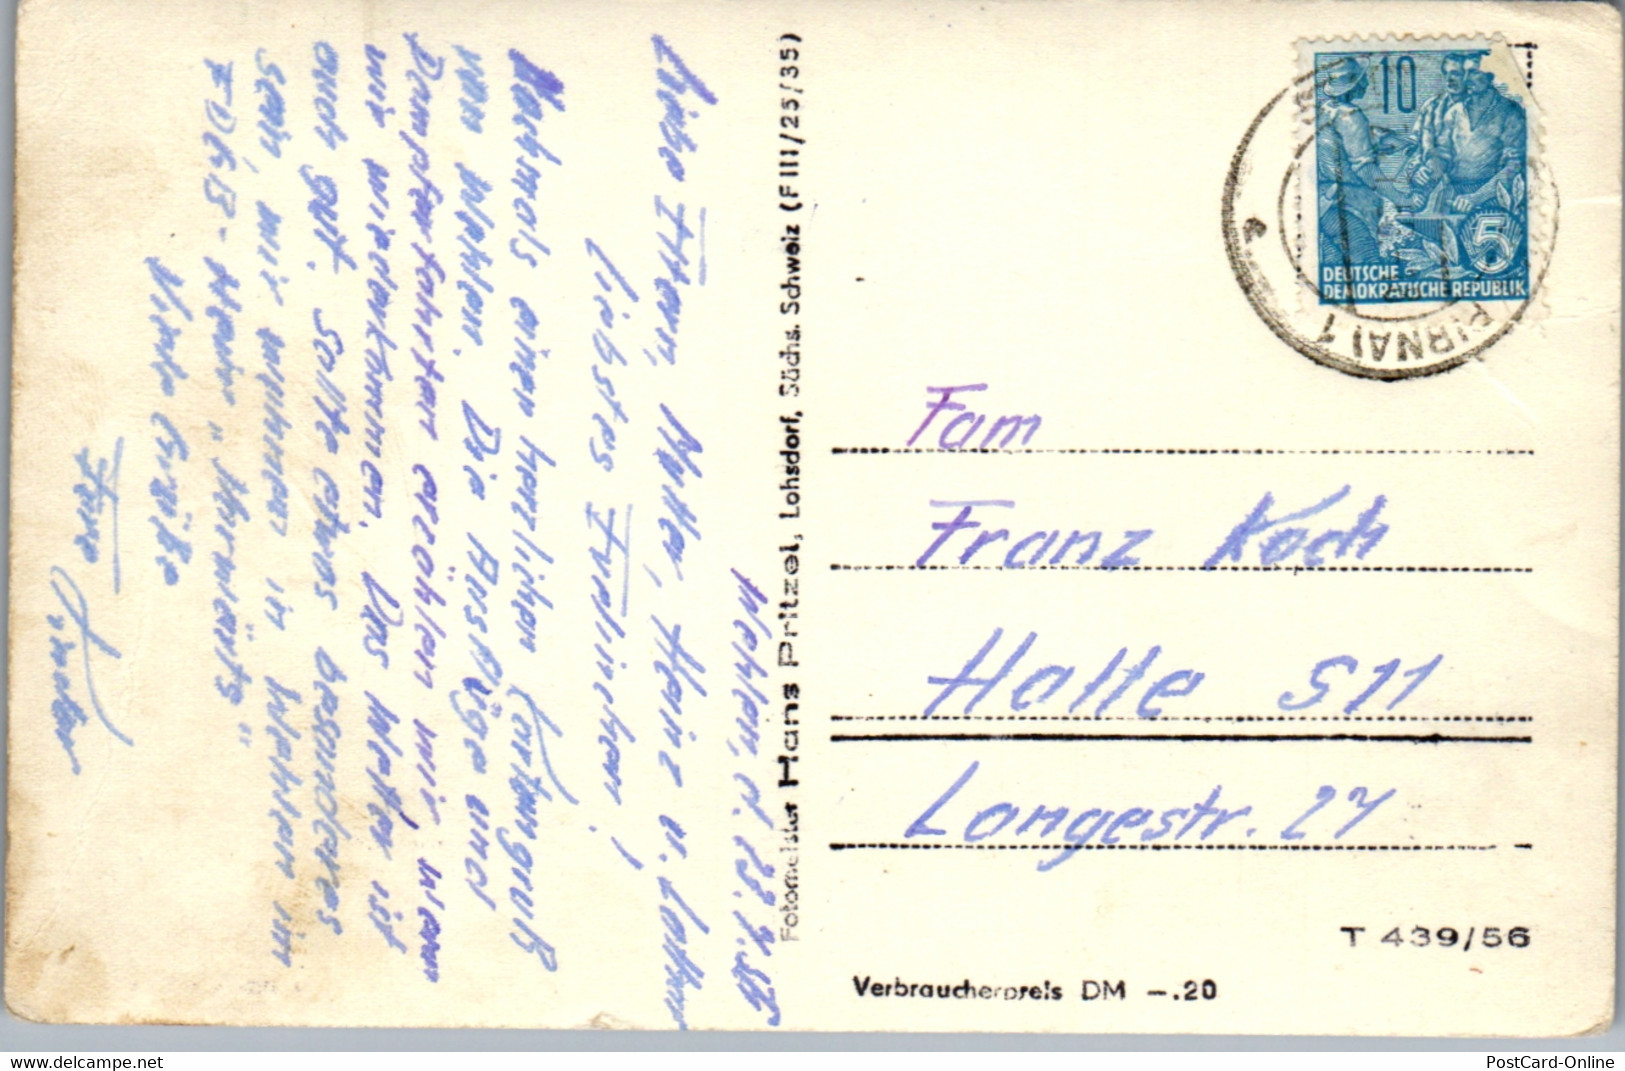 Wehlen, d. 23.7.56
Liebe Eltern, Mutter, Heinz u. Lothar
liebstes Evelinchen!
Nochmals einen herzlichen Kartengruß
von Wehlen. Die Ausflüge und
Dampferfahrten erzählen wir wenn
wir wiederkommen. Das Wetter ist
auch gut. Sollte etwas besonderes
sein, wir wohnen in Wehlen im
FDGB-Heim „Vorwärts"
Viele Grüße
Eure
Fotomeister Hans Pritzel, Lohsdorf, Sächs. Schweiz (F III/25/35)
10
5
DEUTSCHE
DEMOKRATISCHE REPUBLIK
PIRNA 1
e
Fam
Franz Koch
Halle S11
Langestr. 27
T 439/56
Verbraucherpreis DM —.20
www.delcampe.net
PostCard-Online